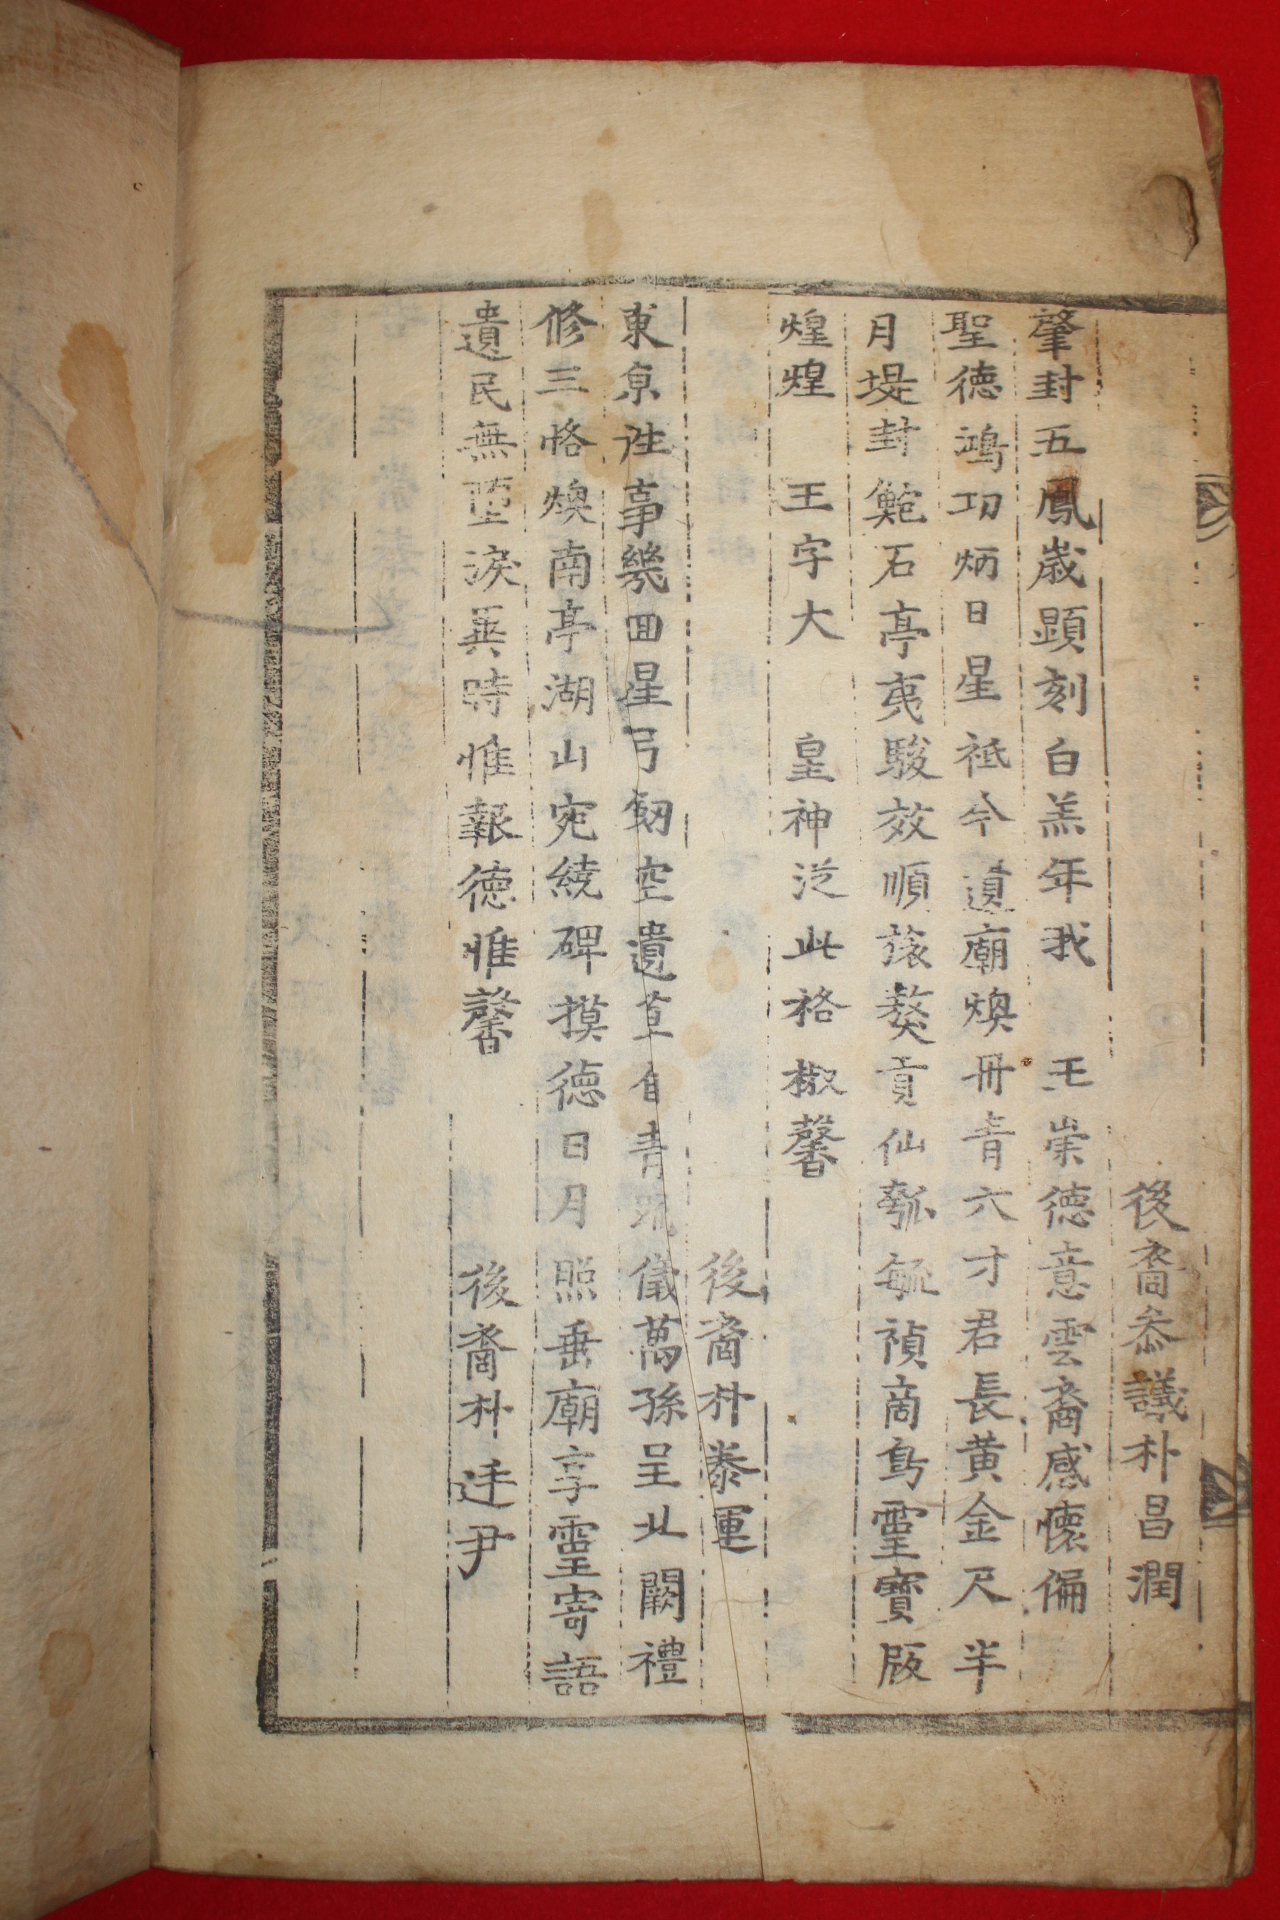 後裔參議朴昌潤
肇封五鳳歲顯刻白羔年我 王崇德意雲裔感懷偏
聖德鴻功炳日星祗今遺廟煥丹青六才君長黃金尺半
月堤封鮑石亭夷駿效順旅獒貢仙瓠毓禎啇鳥靈寶版
煌煌 王字大 皇神泛此格椒馨
後裔朴泰運
東京往事幾回星弓劒空遺草自青 儀萬孫呈北闕禮
修三恪煥南亭湖山宛繞碑摸德日月照垂廟享靈寄語
遺民無墮淚羹時惟報德惟馨
後裔朴廷尹